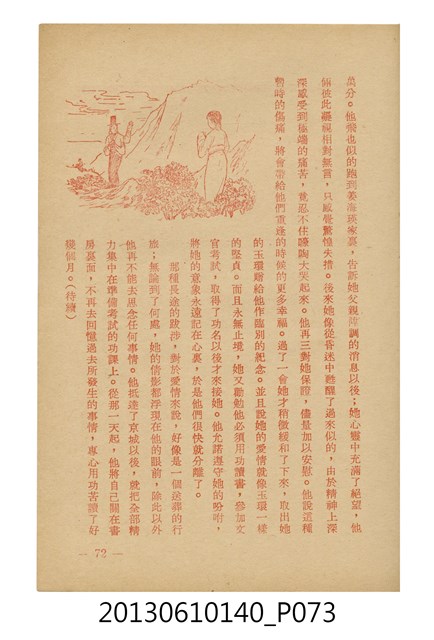 萬分。他飛也似的跑到姜海瑛家裏，告訴她父親降調的消息以後；她心靈中充滿了絕望，他
倆彼此聽視相對無言，只感覺驚惶失措。後來她像從昏迷中甦醒了過來似的，由於精神上深
深感受到極端的痛苦，竟忍不住嚎啕大哭起來。他再三對她保證，儘量加以安慰。他說這種
暫時的傷痛，將會帶給他們重逢的時候的更多幸福。過了一會她才稍微緩和了下來，取出她
的玉環贈給他作臨別的紀念。並且說她的愛情就像玉環一樣
的堅貞。而且永無止境，她又勸勉他必須用功讀書，參加文
官考試，取得了功名以後才來接她。他允諾遵守她的吩咐，
將她的意象永遠記在心裏，於是他們很快就分離了。
那種長途的跋涉，對於愛情來說，好像是一個送葬的行
；無論到了何處，她的倩影都浮現在他的眼前，除此以外
他再不能去思念任何事情。他抵達了京城以後，就把全部精
力集中在準備考試的功課上。從那一天起，他將自己關在書
房裏面，不再去回憶過去所發生的事情，專心用功苦讀了好
幾個月。（待續）
— 72 —
20130610140_P073